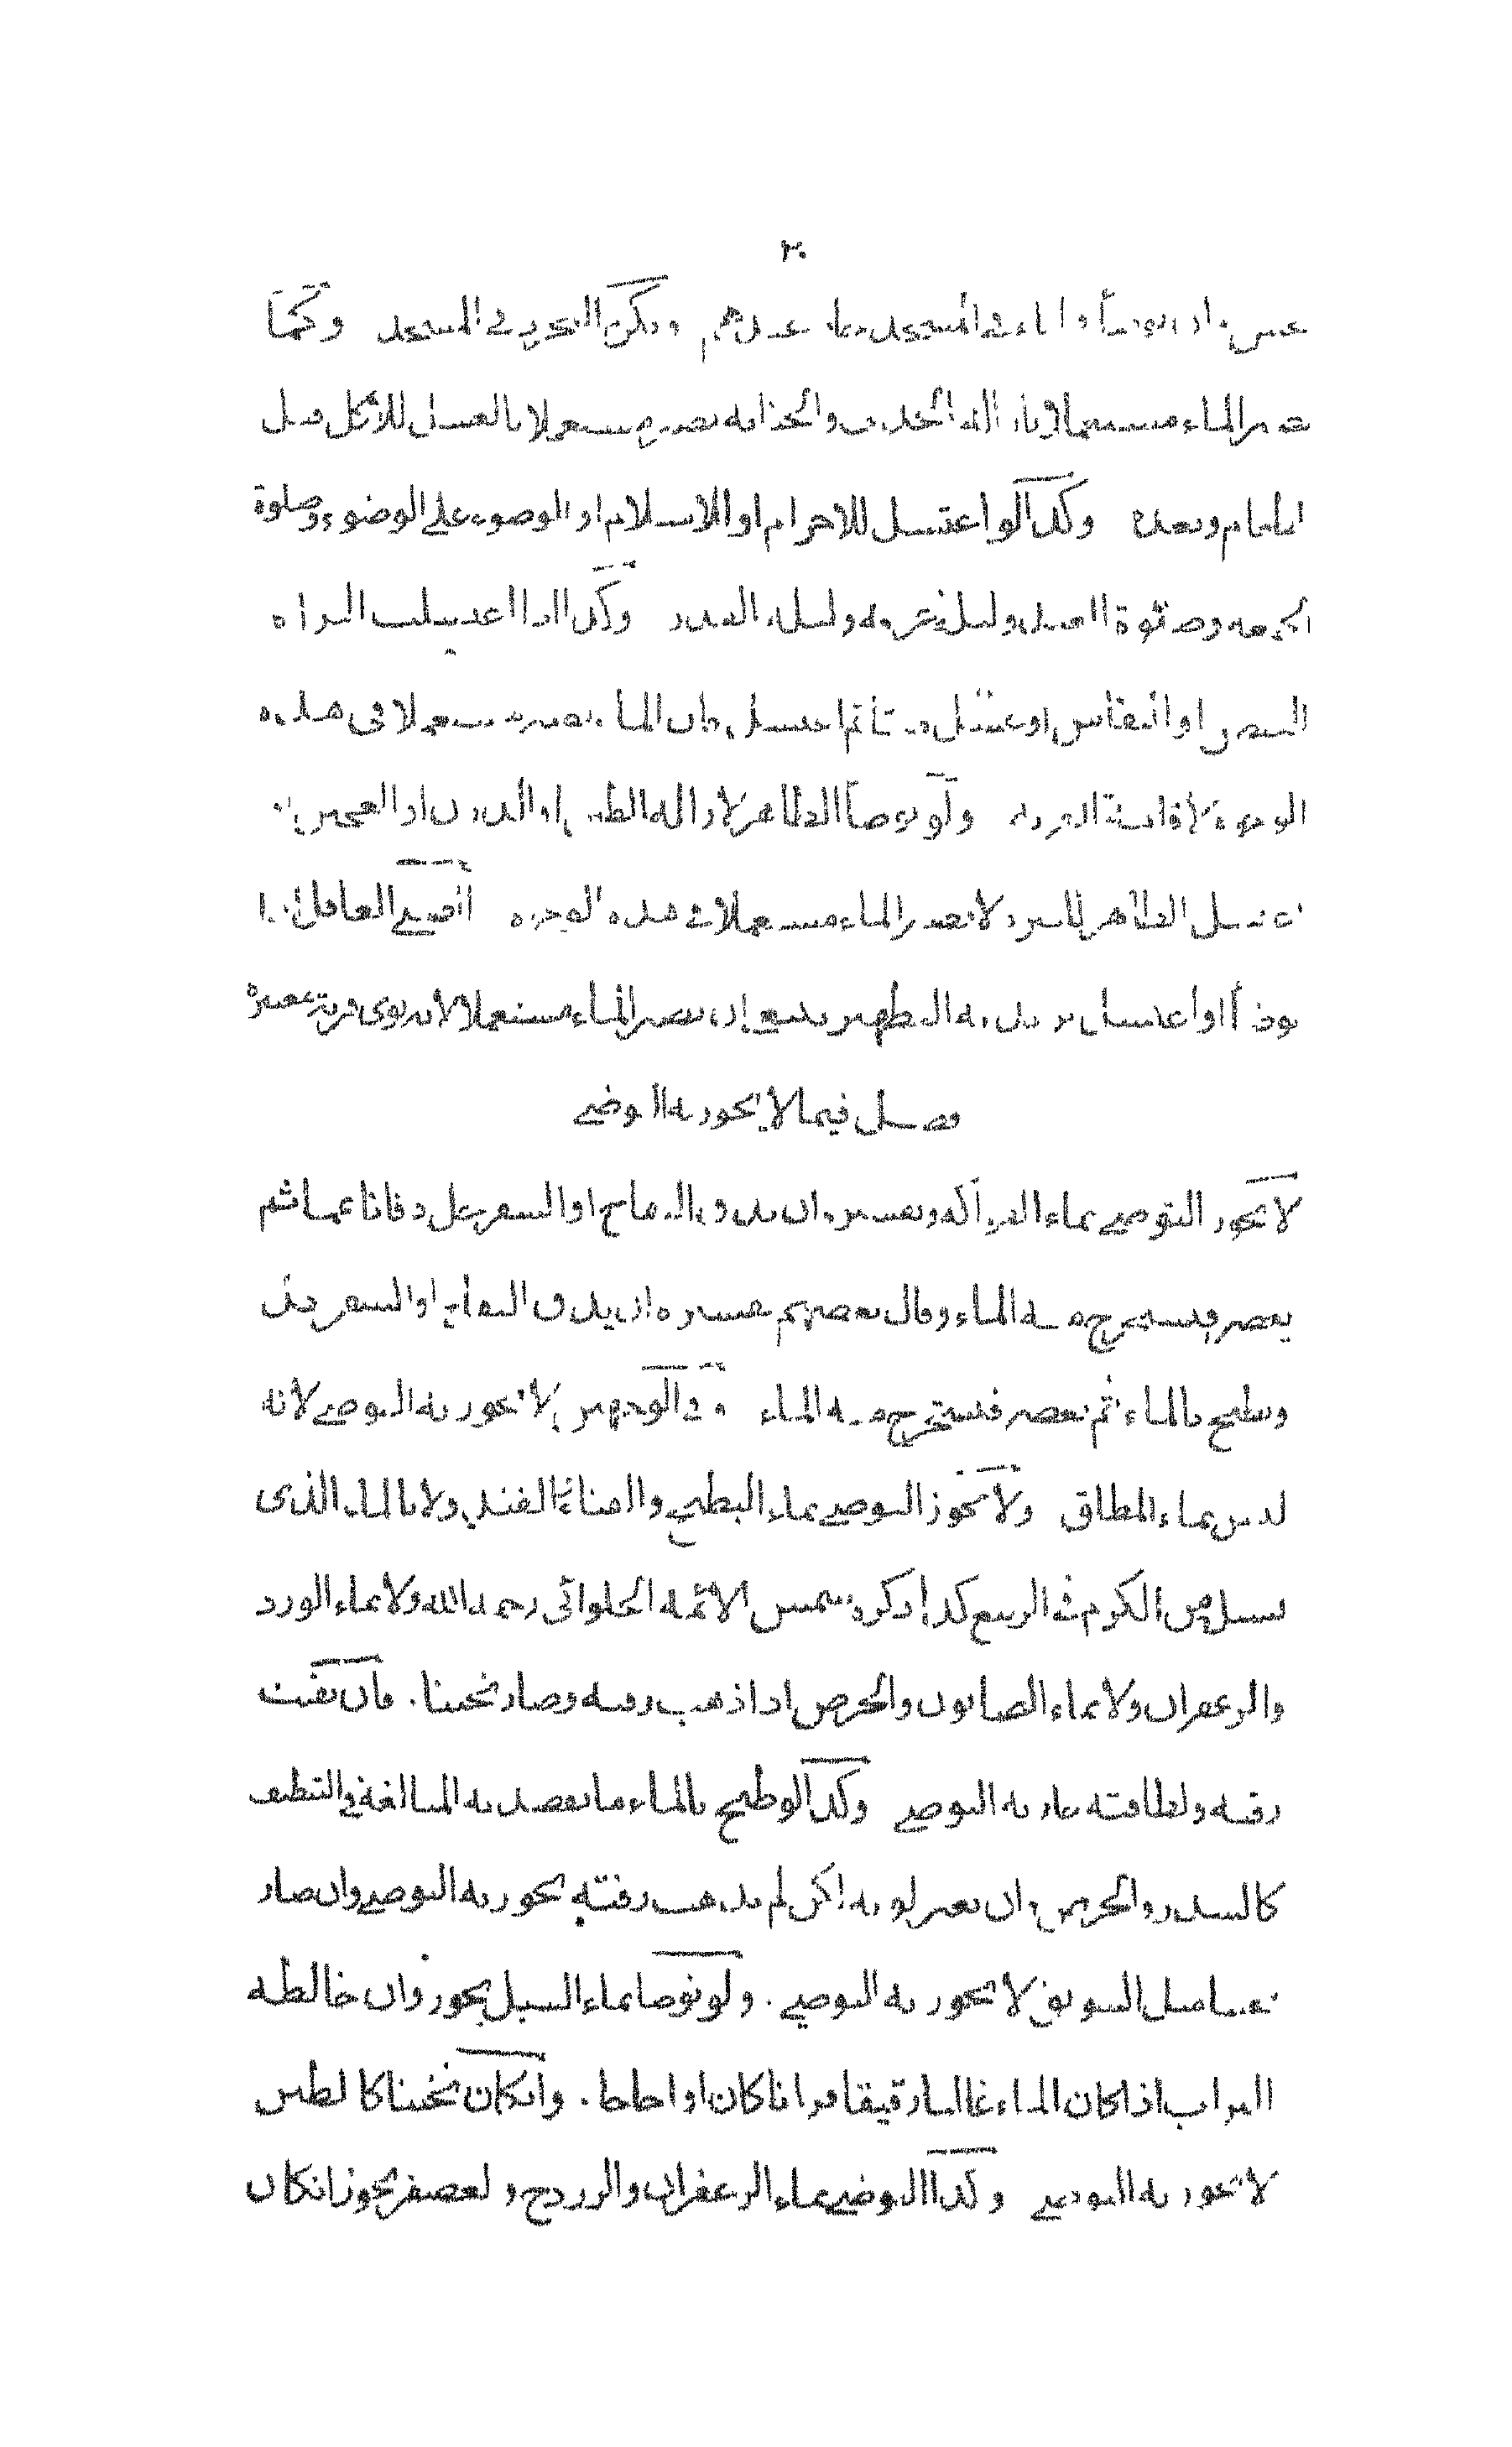 ٣٠
في المسجد عندهم ويكره التوضي في المسجد وكما
يصير الماء مستعملا بازالة الحدث والجنابة يصير مستعملا بالغسل للاكل قبل
الطعام وبعده وكذا لو اغتسل للاحرام او للاسلام او الوضوء على الوضوء وصلوة
الجمعة وصلوة العيد وليلة عرفة وليلة القدر وكذا اذا اغتسلت المراة
الحيض او النفاس او غسل ميتا ثم اغتسل فان الماء يصير مستعملا في هذه
الوجوه لاقامة القربة ولو توضا الطاهر لازالة الطين او الدرن او العجين او
اغتسل الطاهر للتبرد لا يصير الماء مستعملا في هذه الوجوه الصبي العاقل اذا
توضأ او اغتسل يريد به التطهير ينبغي ان يصير الماء مستعملا لانه نوى قربة معتبرة
فصل فيما لا يجوز به التوضي
لا يجوز التوضي بماء الفواكه وتفسيره ان يدق التفاح او السفرجل دقا ناعما ثم
يعصر فيستخرج منه الماء وقال بعضهم تفسيره ان يدق التفاح او السفرجل
ويطبخ بالماء ثم يعصر فيستخرج منه الماء وفي الوجهين لا يجوز به التوضي لانه
ليس بماء المطلق ولا يجوز التوضي بماء البطيخ والقثاء والقثد ولا بالماء الذي
يسيل من الكرم في الربيع كذا ذكره شمس الائمة الحلوائي رحمه الله ولا بماء الورد
والزعفران ولا بماء الصابون والحرض اذا ذهب رقته وصار ثخينا . فان بقيت
رقته ولطافته جاز به التوضي وكذا لو طبخ بالماء ما يقصد به المبالغة في التنظيف
كالسدر والحرض وان تغير لونه لكن لم يذهب رقته يجوز به التوضي وان صار
ثخينا مثل السويق لا يجوز به التوضي . ولو توضا بماء السيل يجوز وان خالطه
التراب اذا كان الماء غالبا رقيقا فراتا كان او اجاجا . وان كان ثخينا كالطين
لا يجوز به التوضي وكذا التوضي بماء الزعفران والزردج والعصفر يجوز ان كان